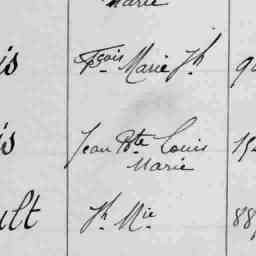 Marie
is Fçois Marie Jh
is Jean Bte Louis
Marie
ult Jh Mie 88